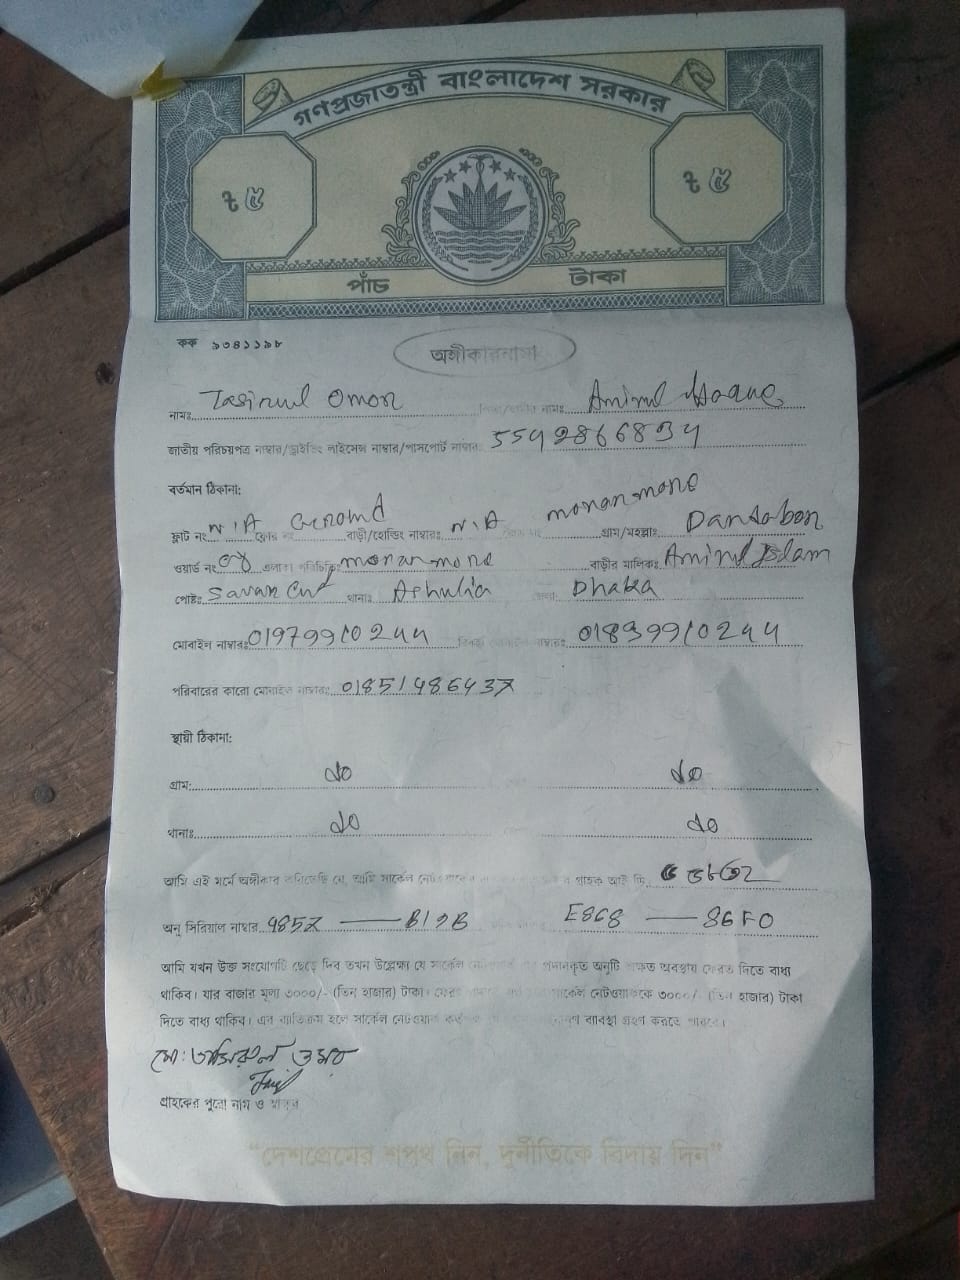 গণপ্রজাতন্ত্রী বাংলাদেশ সরকার
৳ ৫ ৳ ৫
পাঁচ টাকা
কক ৯৩৪১১৯৮
অঙ্গীকারনামা
নামঃ Tasirul Omor নামঃ Aminul Haque
জাতীয় পরিচয়পত্র নাম্বার/ড্রাইভিং লাইসেন্স নাম্বার/পাসপোর্ট নাম্বার: 5542866834
বর্তমান ঠিকানা:
ফ্লাট নং N/A Ground বাড়ী/হোল্ডিং নাম্বারঃ N/A monanmone গ্রাম/মহল্লাঃ
ওয়ার্ড নং এলাকা পরিচিতি monanmone বাড়ীর মালিকঃ Aminul Islam
পোষ্টঃ Savar থানাঃ Ashulia Dhaka
মোবাইল নাম্বারঃ 01979910244 নাম্বারঃ 01839910244
পরিবারের কারো মোবাইল নাম্বারঃ 01851486437
স্থায়ী ঠিকানা:
গ্রাম: do do
থানাঃ do do
আমি এই মর্মে অঙ্গীকার করিতেছি যে, আমি সার্কেল গ্রাহক আই ডি
অনু সিরিয়াল নাম্বার E868 — 86F0
আমি যখন উক্ত সংযোগটি ছেড়ে দিব তখন উল্লেখ্য যে সার্কেল প্রদানকৃত অনুটি অক্ষত অবস্থায় ফেরত দিতে বাধ্য
থাকিব। যার বাজার মূল্য ৩০০০/- (তিন হাজার) টাকা। সার্কেল নেটওয়ার্ককে ৩০০০/- (তিন হাজার) টাকা
দিতে বাধ্য থাকিব। এর ব্যতিক্রম হলে সার্কেল নেটওয়ার্ক ব্যবস্থা গ্রহণ করতে পারবে।
মো: তাসিরুল ওমর
গ্রাহকের পুরো নাম ও স্বাক্ষর
“দেশপ্রেমের শপথ নিন, দুর্নীতিকে বিদায় দিন”